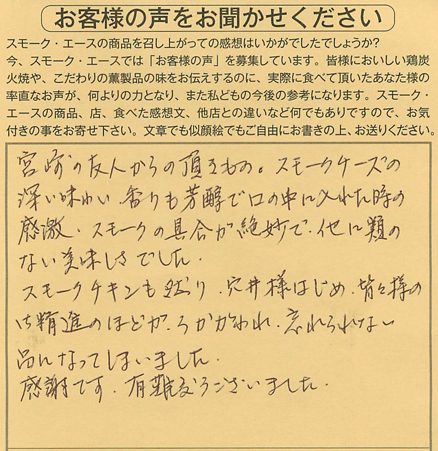 お客様の声をお聞かせください
スモーク・エースの商品を召し上がっての感想はいかがでしたでしょうか?
今、スモーク・エースでは「お客様の声」を募集しています。皆様においしい鶏炭
火焼や、こだわりの薫製品の味をお伝えするのに、実際に食べて頂いたあなた様の
率直なお声が、何よりの力となり、また私どもの今後の参考になります。スモーク・
エースの商品、店、食べた感想文、他店との違いなど何でもありですので、お気
付きの事をお寄せ下さい。文章でも似顔絵でもご自由にお書きの上、お送りください。
宮崎の友人からの頂きもの。スモークチーズの
深い味わい、香りも芳醇で口の中に入れた時の
感激、スモークの具合が絶妙で、他に類の
ない美味しさでした。
スモークチキンも然り、穴井様はじめ、皆々様の
ご精進のほどが、うかがわれ、忘れられない
品になってしまいました。
感謝です。有難うございました。